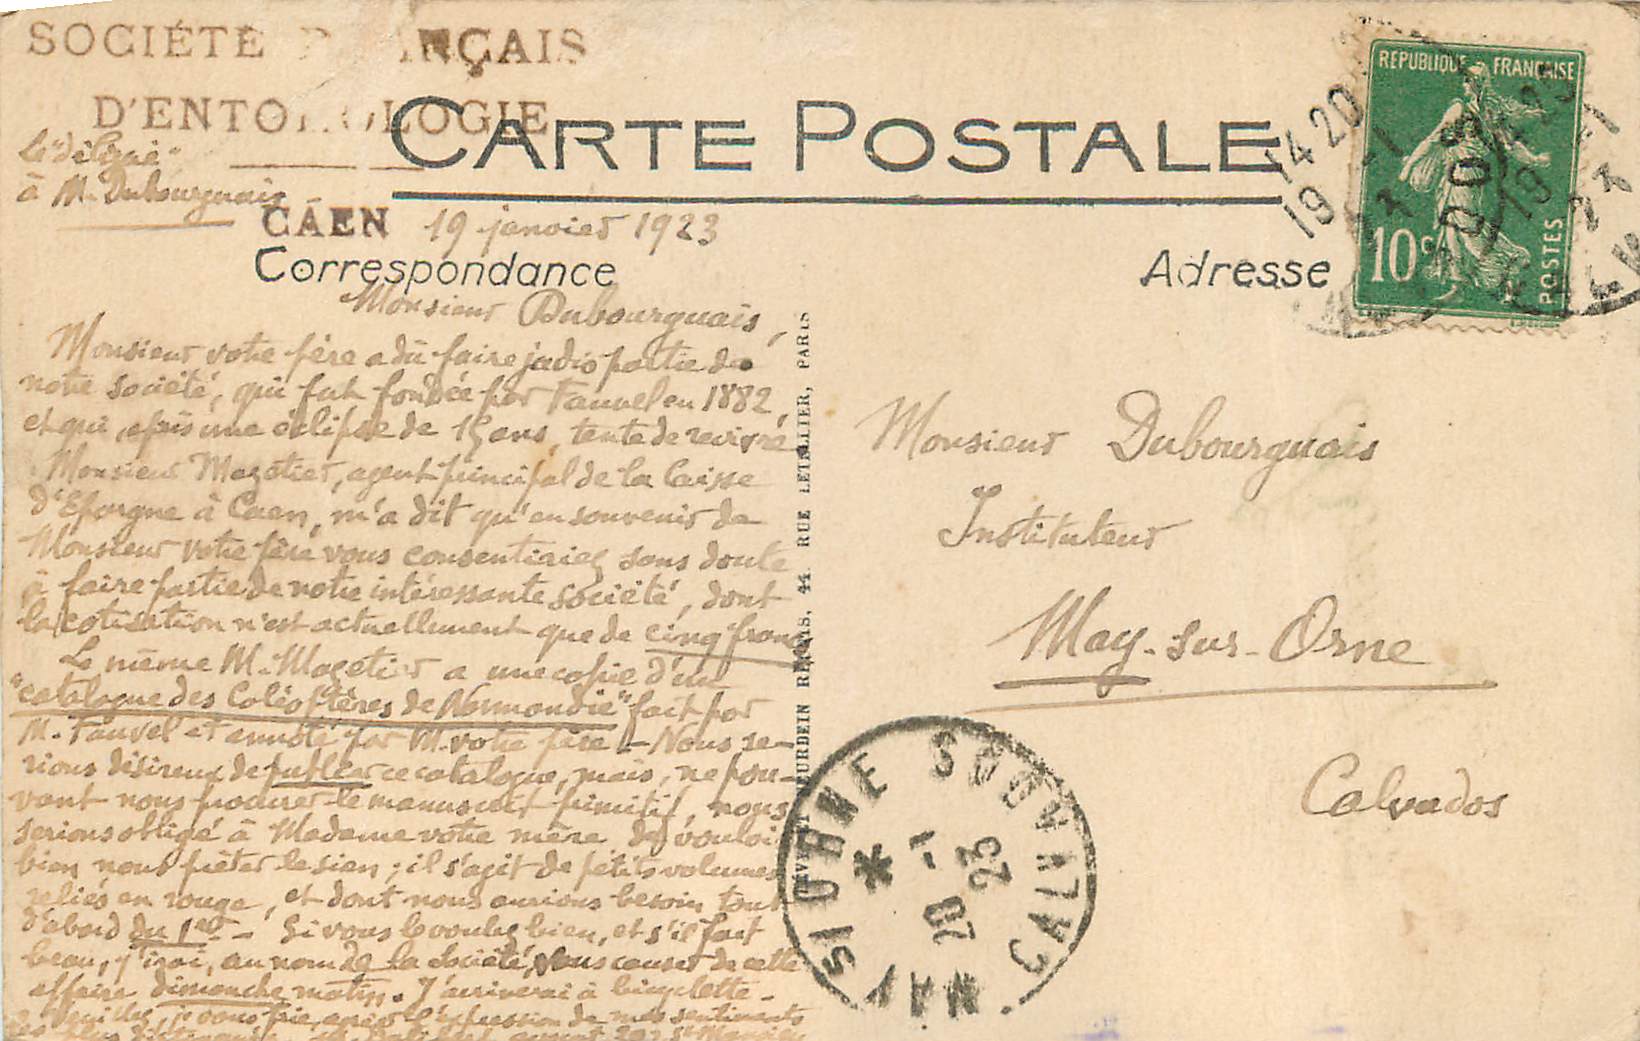 SOCIÉTÉ FRANÇAIS
D'ENTOMOLOGIE
Le "délégué"
à M. Dubourguais
CARTE POSTALE
CAEN 19 janvier 1923
Correspondance
Monsieur Dubourguais,
Monsieur votre père a dû faire jadis partie de
notre société, qui fut fondée par Fauvel en 1882,
et qui, après une éclipse de 15 ans, tente de revivre
Monsieur Mazetier, agent principal de la Caisse
d'Epargne à Caen, m'a dit qu'en souvenir de
Monsieur votre père vous consentiriez sans doute
à faire partie de notre intéressante société, dont
la cotisation n'est actuellement que de cinq francs
Le même M. Mazetier a une copie d'un
"catalogue des Coléoptères de Normandie" fait par
M. Fauvel et annoté par M. votre père – Nous se-
rions désireux de publier ce catalogue, mais, ne pou-
vant nous procurer le manuscrit primitif, nous
serions obligé à Madame votre mère de vouloir
bien nous prêter le sien ; il s'agit de petits volumes
reliés en rouge, et dont nous aurions besoin tout
d'abord du 1er – Si vous le voulez bien, et s'il fait
beau, j'irai, au nom de la Société, vous causer de cette
affaire dimanche matin. J'arriverai à bicyclette.
Veuillez, je vous prie, agréer l'expression de mes sentiments
les plus distingués.
44 RUE LETELLIER, PARIS
Adresse
REPUBLIQUE FRANÇAISE
10c
POSTES
14 20
19 -1
23
Monsieur Dubourguais
Instituteur
May-sur-Orne
Calvados
MAY S/ ORNE
CALVADOS
20 -1
23